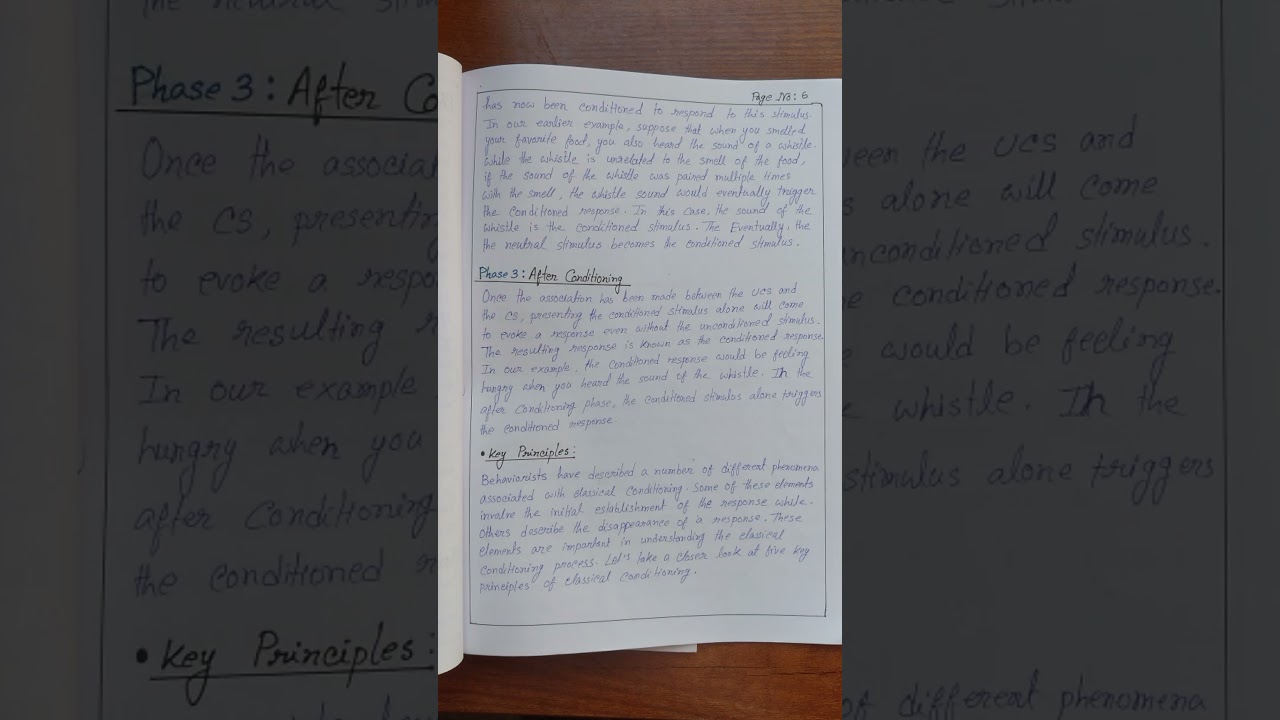 Page No: 6
has now been conditioned to respond to this stimulus.
In our earlier example, suppose that when you smelled
your favorite food, you also heard the sound of a whistle.
While the whistle is unrelated to the smell of the food,
if the sound of the whistle was paired multiple times
with the smell, the whistle sound would eventually trigger
the conditioned response. In this case, the sound of the
whistle is the conditioned stimulus. The Eventually, the
the neutral stimulus becomes the conditioned stimulus.
Phase 3: After Conditioning
Once the association has been made between the UCS and
the CS, presenting the conditioned stimulus alone will come
to evoke a response even without the unconditioned stimulus.
The resulting response is known as the conditioned response.
In our example, the conditioned response would be feeling
hungry when you heard the sound of the whistle. In the
after Conditioning phase, the conditioned stimulus alone triggers
the conditioned response.
• Key Principles:
Behaviorists have described a number of different phenomena
associated with classical conditioning. Some of these elements
involve the initial establishment of the response while.
Others describe the disappearance of a response. These
elements are important in understanding the classical
conditioning process. Let's take a closer look at five key
principles of classical Conditioning.